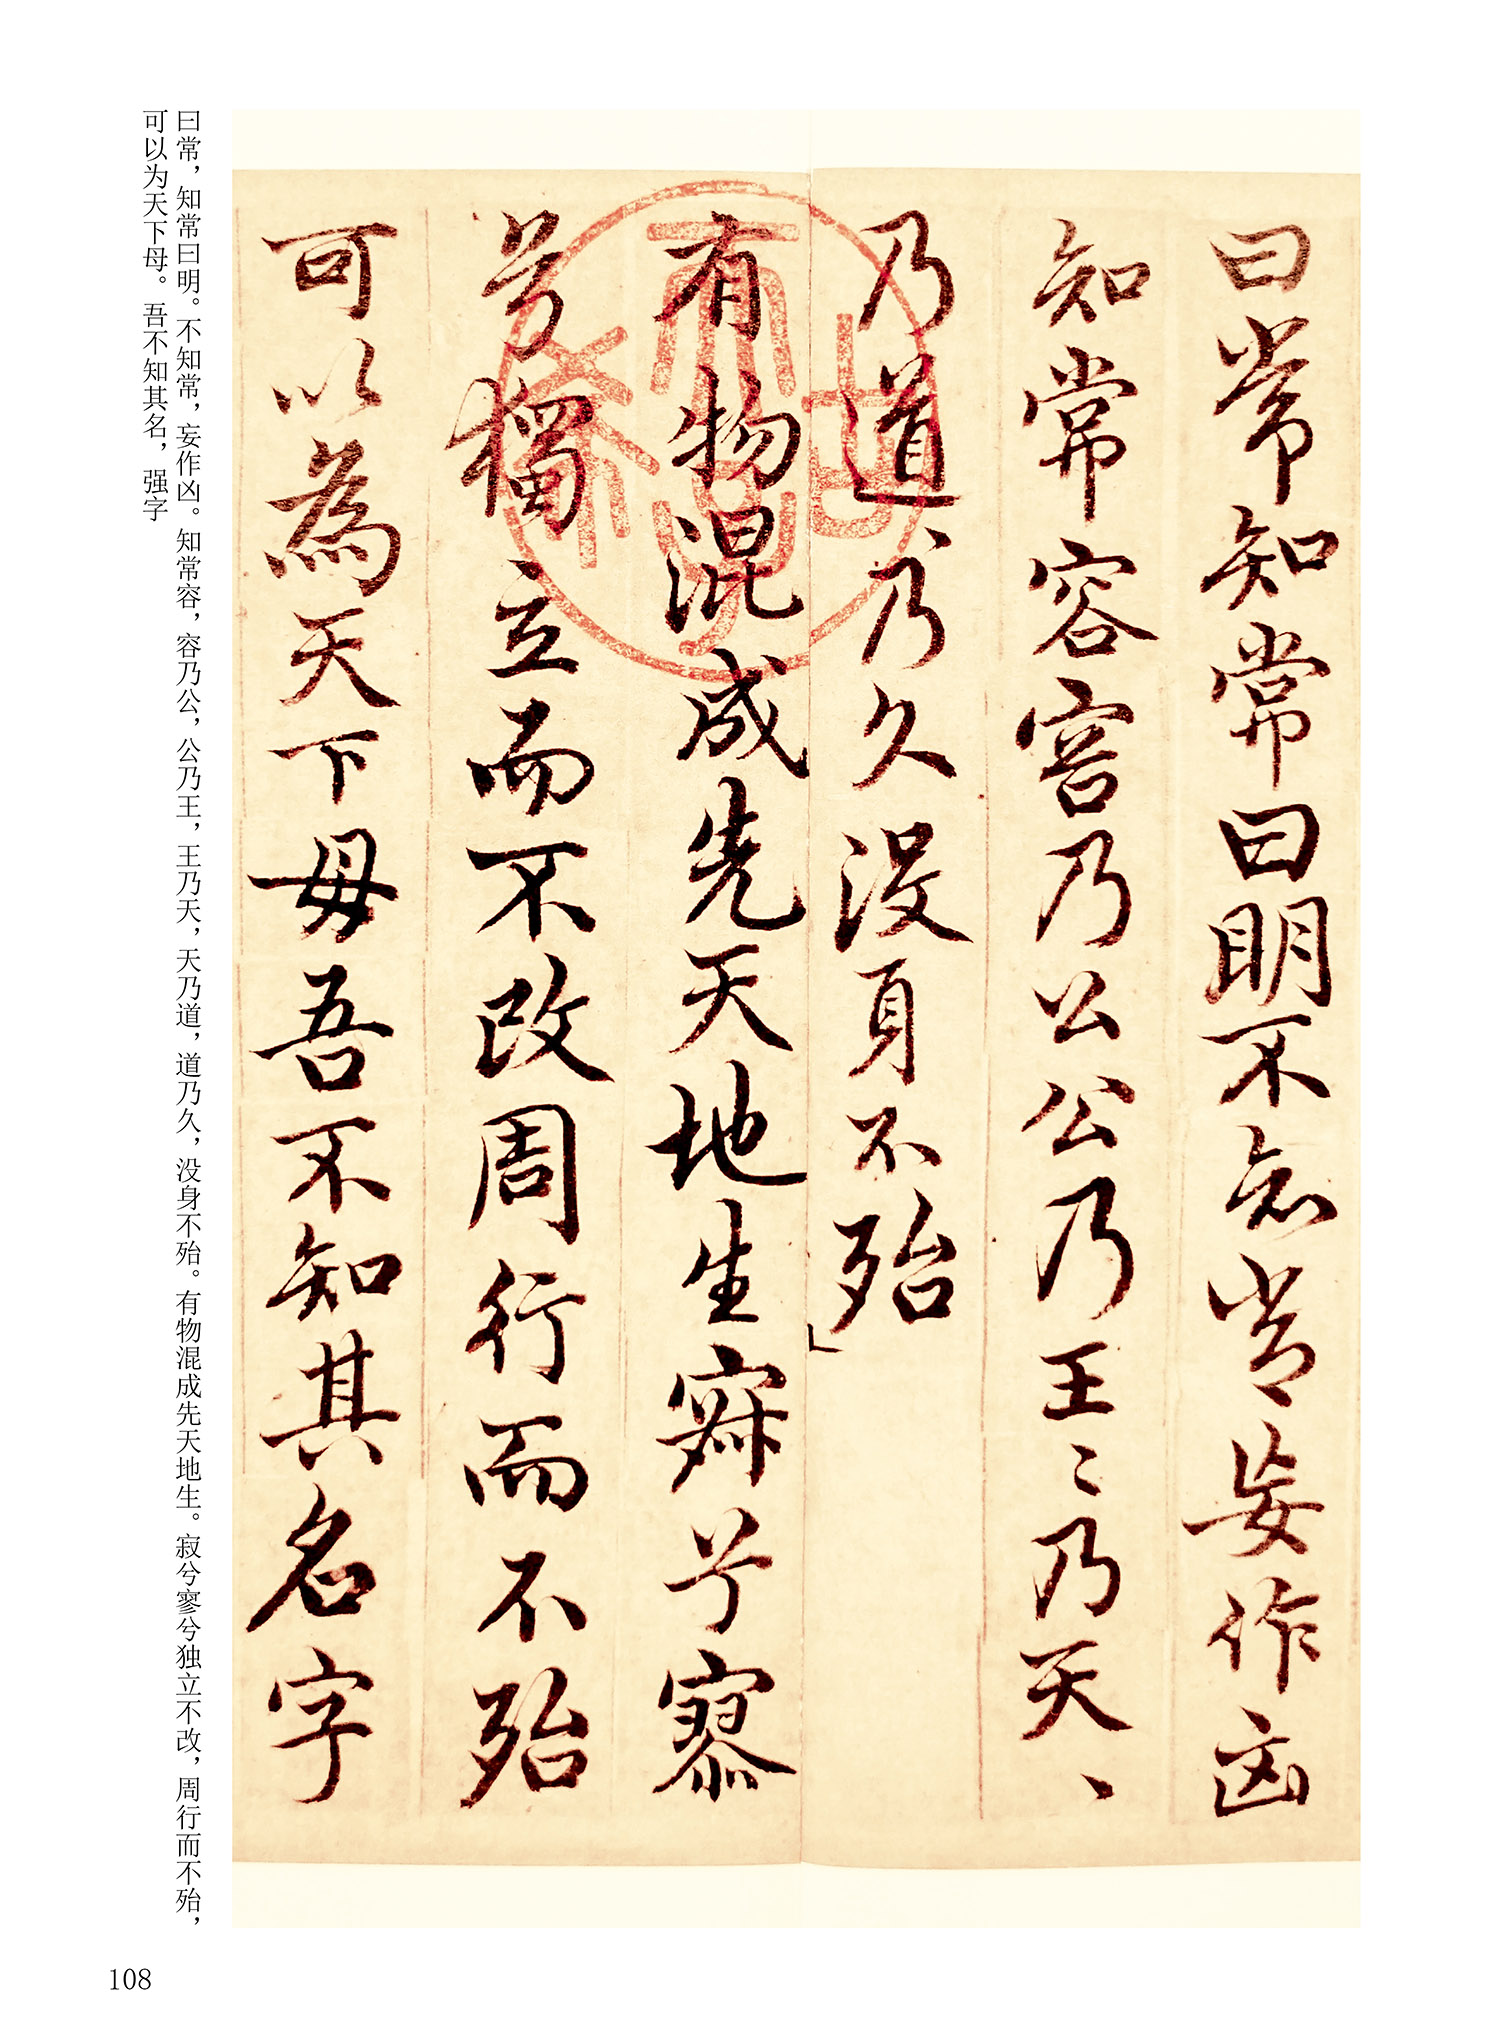 曰常知常曰明不知常妄作凶
知常容容乃公公乃王王乃天、
乃道、乃久没身不殆
有物混成先天地生寂兮寥
兮獨立而不改周行而不殆
可以為天下母吾不知其名字
曰常，知常曰明。不知常，妄作凶。知常容，容乃公，公乃王，王乃天，天乃道，道乃久，没身不殆。有物混成先天地生。寂兮寥兮独立不改，周行而不殆，
可以为天下母。吾不知其名，强字
108